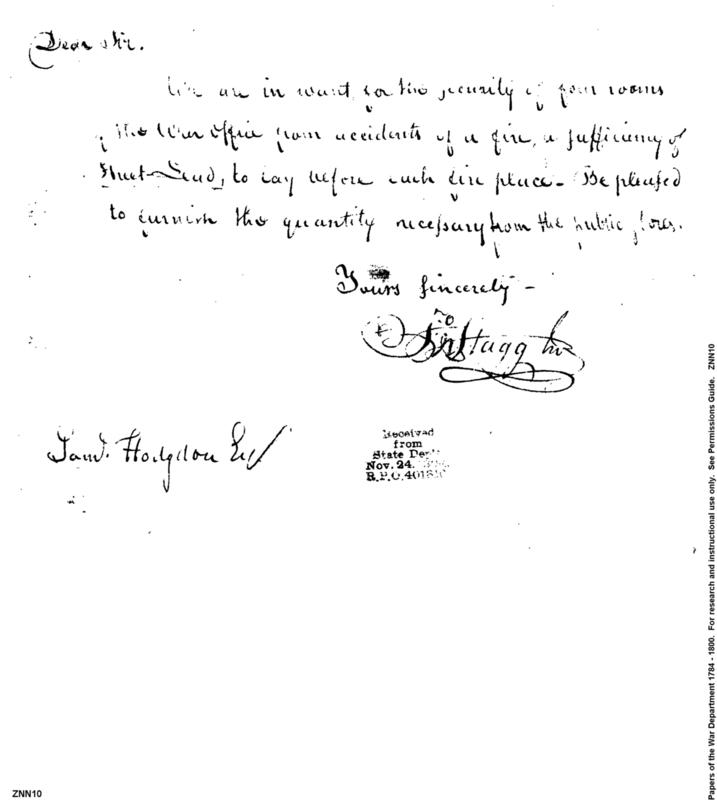 Dear Sir.
We are in want, for the security of four rooms
of the War Office from accidents of a fire, a sufficiency of
Sheet-Lead, to lay before each fire place - Be pleased
to furnish the quantity necessary from the public stores.
Yours sincerely -
Jn Stagg Jnr
Saml. Hodgdon Esq
Received
from
State Dep't
Nov. 24.
R.P.O.
Papers of the War Department 1784 - 1800. For research and instructional use only. See Permissions Guide. ZNN10
ZNN10